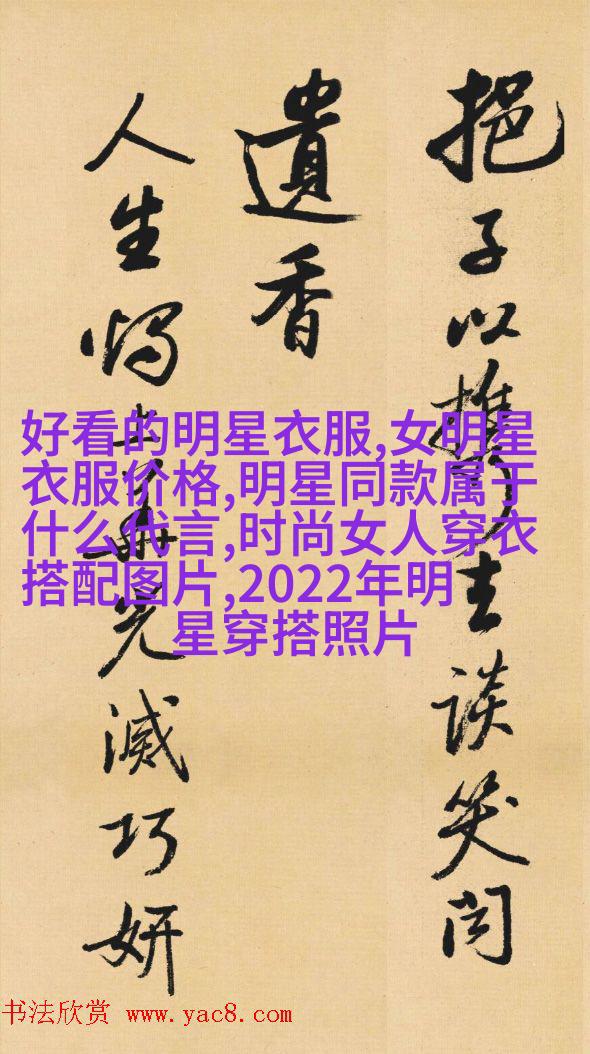 挹子以談笑间
遺香
人生光滅巧妍
好看的明星衣服,女明星
衣服价格,明星同款属于
什么代言,时尚女人穿衣
搭配图片,2022年明
星穿搭照片
书法欣赏 www.yac8.com